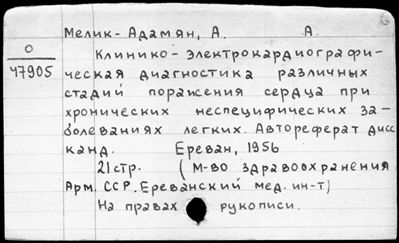 Мелик-Адамян, А. А.
О
47905
Клинико-электрокардиографи-
ческая диагностика различных
стадий поражения сердца при
хронических неспецифических за-
болеваниях легких. Автореферат дисс
канд. Ереван, 1956
21 стр. (М-во здравоохранения
Арм. ССР. Ереванский мед. ин-т)
На правах рукописи.